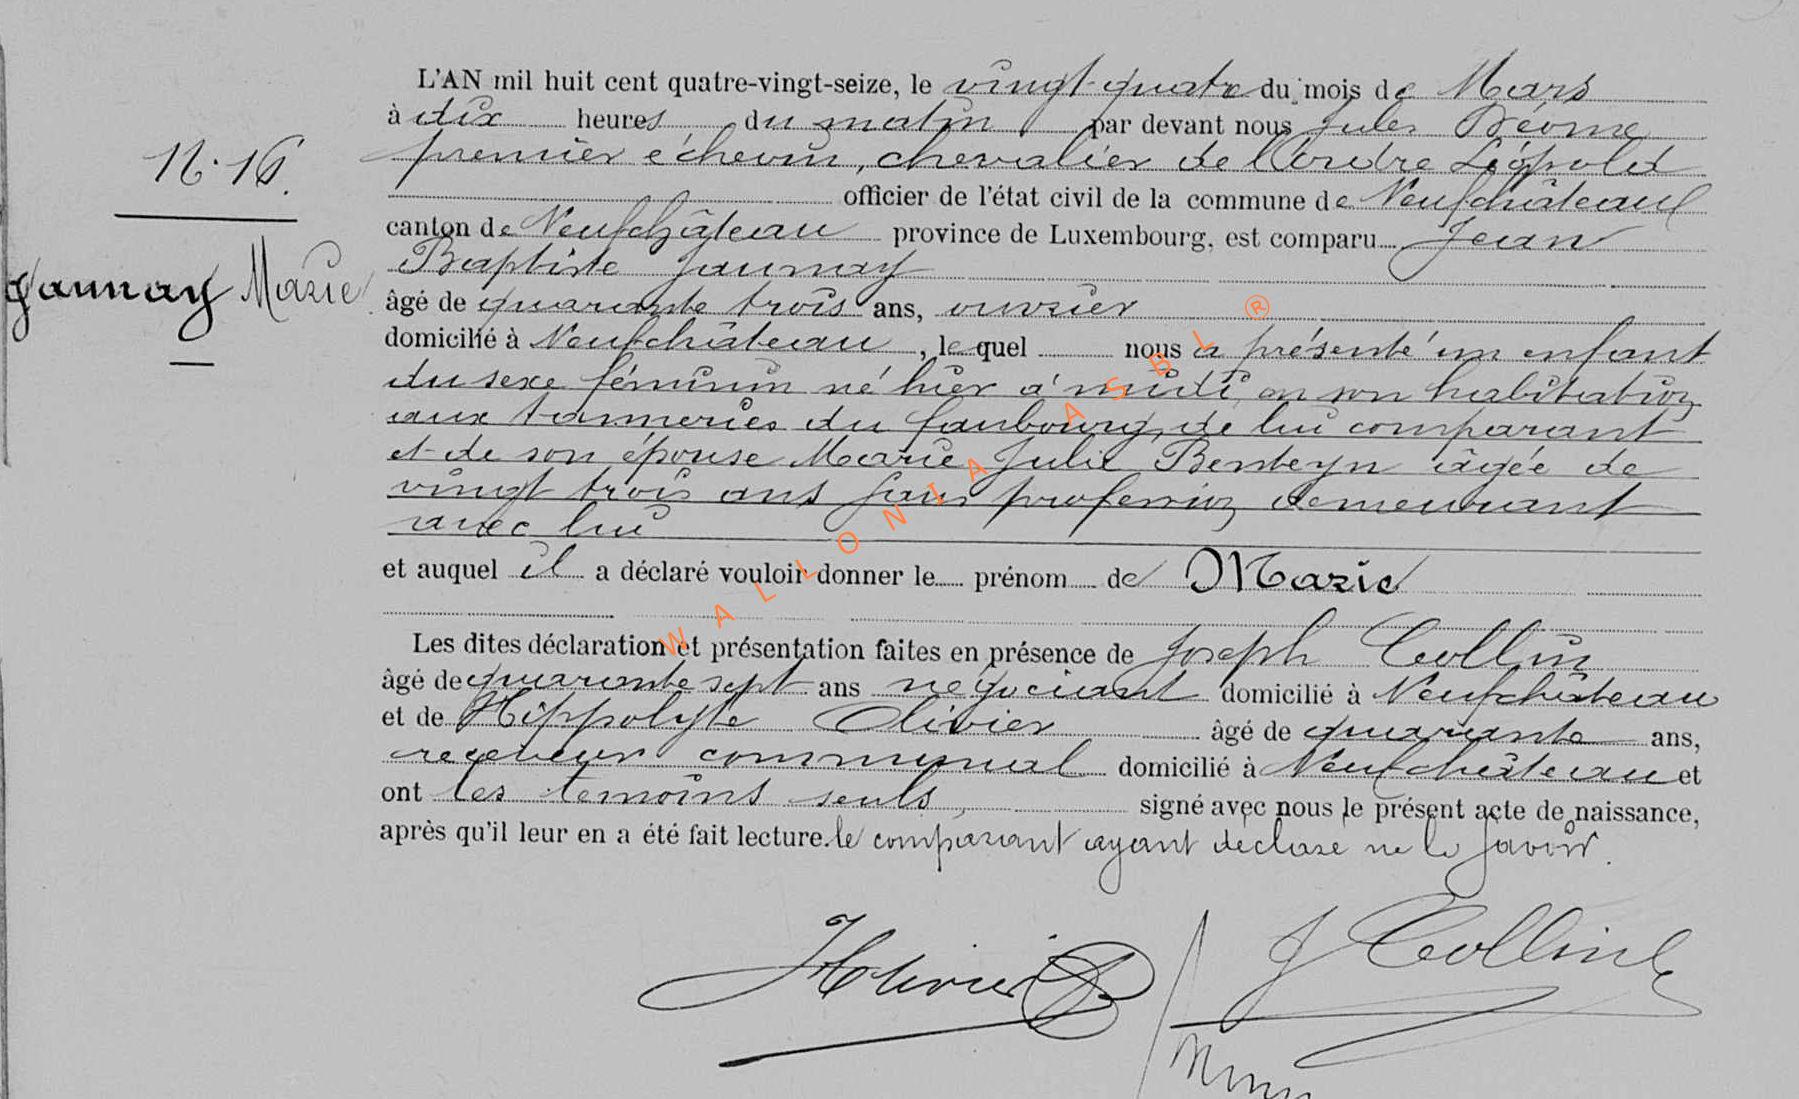 L'AN mil huit cent quatre-vingt-seize, le vingt-quatre du mois de Mars
à dix heures du matin par devant nous Jules
premier échevin, chevalier de l'ordre Léopold
N. 16.
officier de l'état civil de la commune de Neufchâteau
canton de Neufchâteau province de Luxembourg, est comparu Jean
Baptiste Jaumay
Jaumay Marie
âgé de quarante trois ans, ouvrier
domicilié à Neufchâteau, lequel nous a présenté un enfant
du sexe féminin né hier à midi en son habitation
aux tanneries du faubourg, de lui comparant
et de son épouse Marie Julie Benteyn âgée de
vingt trois ans sans profession demeurant
avec lui
et auquel il a déclaré vouloir donner le prénom de Marie
Les dites déclaration et présentation faites en présence de Joseph Collin
âgé de quarante sept ans négociant domicilié à Neufchâteau
et de Hippolyte Olivier âgé de quarante ans,
receveur communal domicilié à Neufchâteau et
ont les témoins seuls, signé avec nous le présent acte de naissance,
après qu'il leur en a été fait lecture. le comparant ayant déclaré ne le savoir.
HOlivier
J Collin
WALLONIA ASBL ®